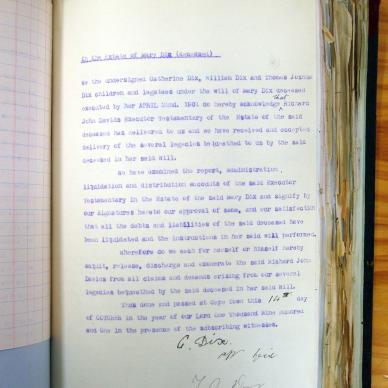 In the Estate of Mary Dix (deceased)
We the undersigned Catherine Dix, William Dix and Thomas
Dix children and legatees under the will of Mary Dix deceased
executed by her APRIL 22nd. 1901 do hereby acknowledge that Richard
John Davids Executor Testamentary of the Estate of the said
deceased has delivered to us and we have received and accepted
delivery of the several legacies bequeathed to us by the said
deceased in her said will.
We have examined the report, administration,
liquidation and distribution accounts of the said Executor
Testamentary in the Estate of the said Mary Dix and signify by
our signatures hereto our approval of same, and our satisfaction
that all the debts and liabilities of the said deceased have
been liquidated and the instructions in her said will performed.
Wherefore do we each for herself or himself hereby
acquit, release, discharge and exonerate the said Richard John
Davids from all claims and demands arising from our several
legacies bequeathed by the said deceased in her said will.
Thus done and passed at Cape Town this 14th day
of OCTOBER in the year of our Lord One thousand Nine hundred
and One in the presence of the subscribing witnesses.
C. Dix.
Dix